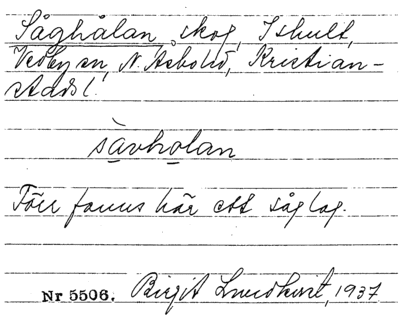 Såghålan, skog, Ishult,
Vedby sn, N. Åsbo hd, Kristian-
stads l.
såvholan
Förr fanns här ett såglag.
Nr 5506. Birgit Lundkvist, 1937